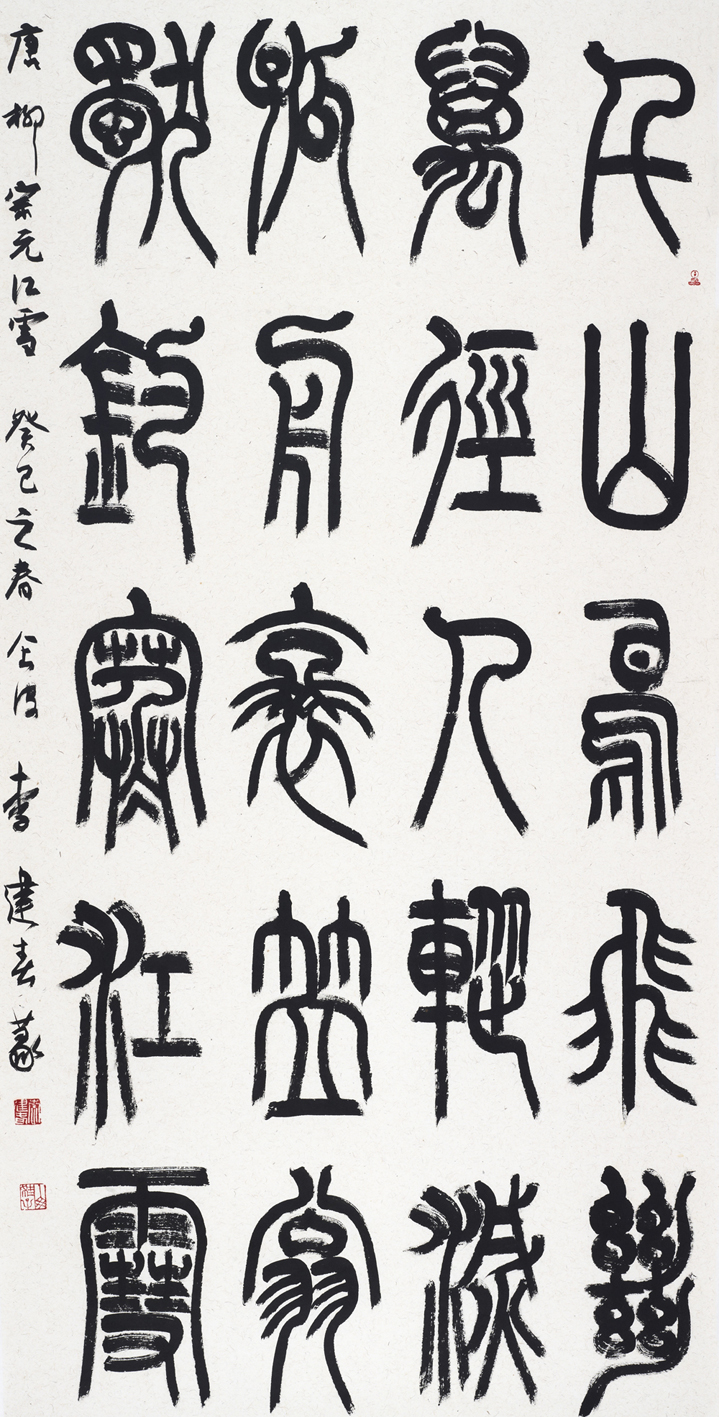 千山鳥飛絕
萬徑人蹤滅
孤舟蓑笠翁
獨釣寒江雪
唐柳宗元江雪 癸巳之春 李建春篆